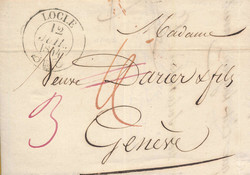 LOCLE
12
JUIL.
Madame
Veuve Darier & fils
Genève